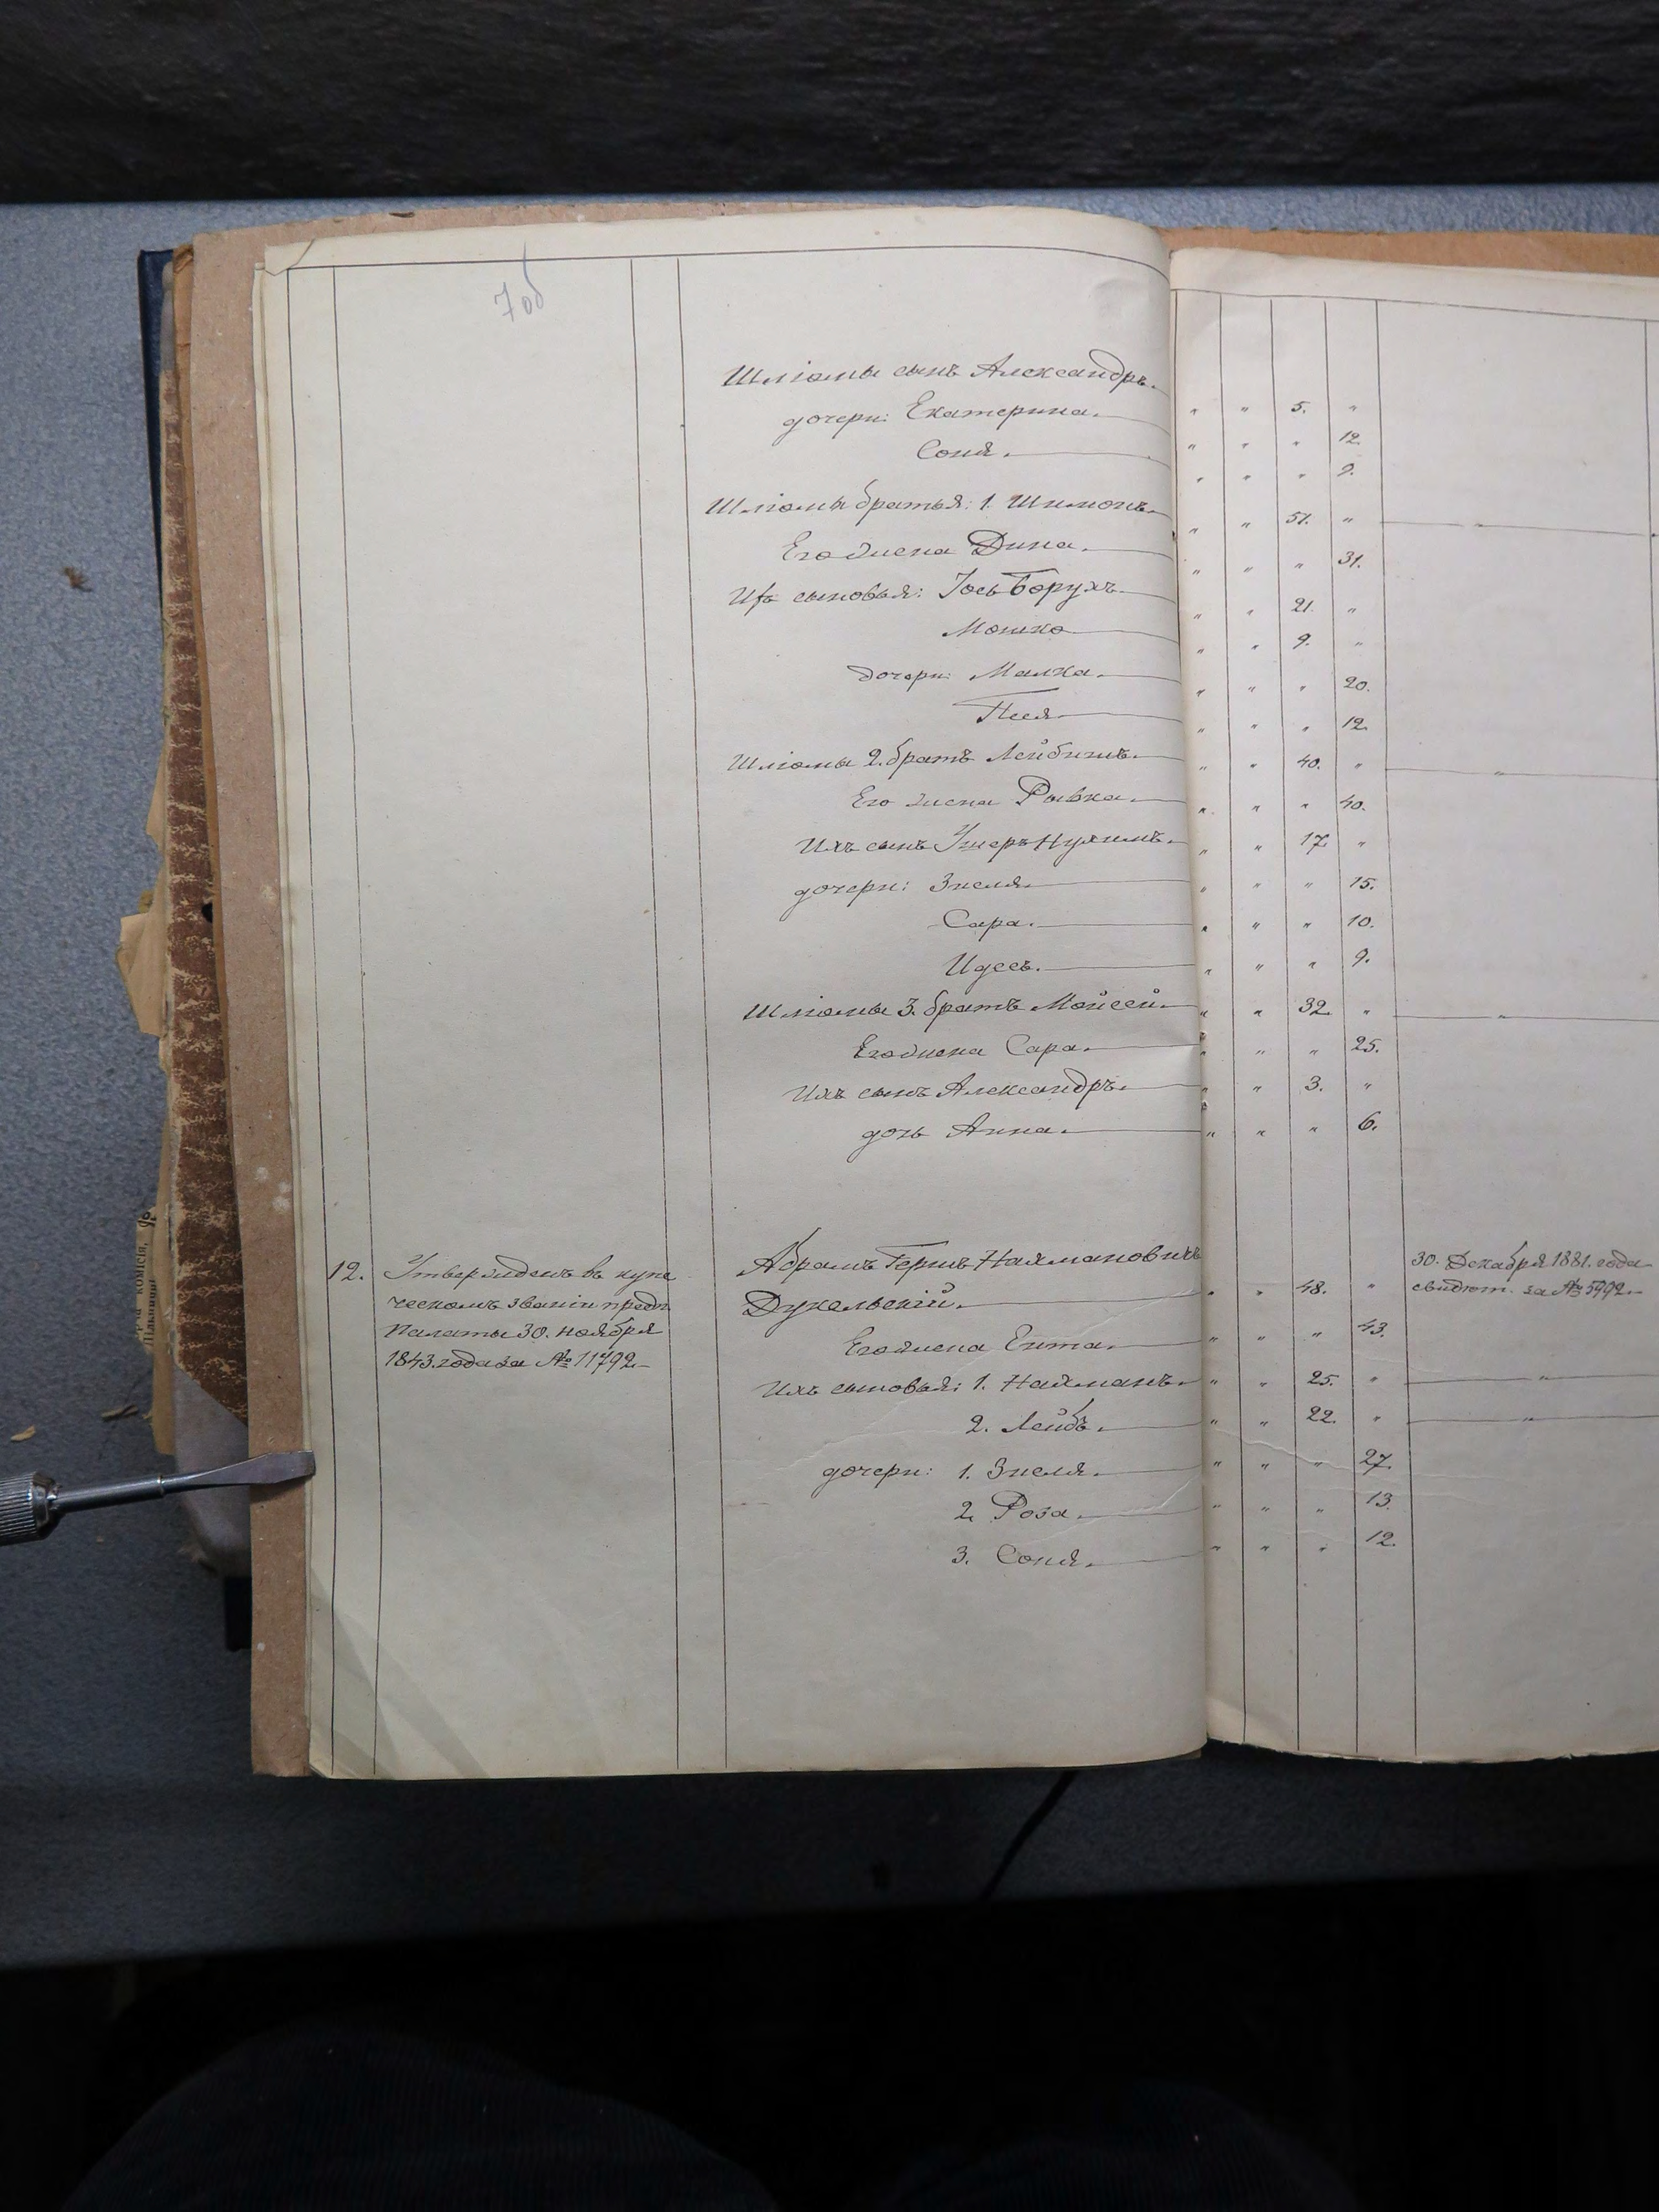 7 об
Шліомы сынъ Александръ. " " 5. "
дочери: Екатерина. " " " 12.
Соня. " " " 9.
Шліомы братья: 1. Шимонъ. " " 51. " "
Его жена Дина. " " " 31.
Ихъ сыновья: Іось Борухъ. " " 21. "
Мошко " " 9. "
дочери: Малка. " " " 20.
Песя " " " 12.
Шліомы 2. братъ Лейбишъ. " " 40. " "
Его жена Рывка. " " " 40.
Ихъ сынъ Ушеръ Нухимъ. " " 17. "
дочери: Зисля. " " " 15.
Сара. " " " 10.
Идесъ. " " " 9.
Шліомы 3. братъ Мойсей. " " 32. " "
Его жена Сара. " " " 25.
Ихъ сынъ Александръ. " " 3. "
дочь Анна. " " " 6.
12. Утвержденъ въ купе Абрамъ Гершъ Нахмановичъ 30. Декабря 1881. года
ческомъ званіи предп. Дукельскій. " " 48. " свидѣт. за № 5992.
Палаты 30. ноября Его жена Ента. " " " 43.
1843. года за № 11792. Ихъ сыновья: 1. Нахманъ. " " 25. " "
2. Лейбъ. " " 22. " "
дочери: 1. Зисля. " " " 27.
2. Роза. " " " 13.
3. Соня. " " " 12.